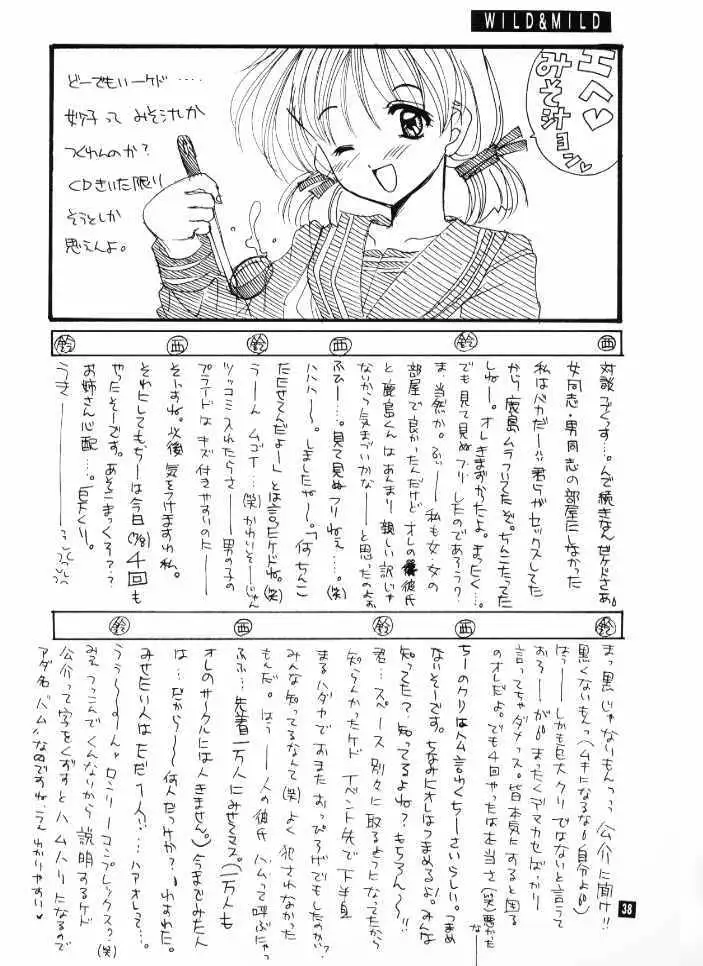 WILD&MILD
エヘ♡
みそ汁ヨン♡
どーでもいーケド・・・・
妙子って みそ汁しか
つくれんのか?
CDきいた限り
そうとしか
思えんよ。
西
鈴
西
鈴
西
鈴
対談でぃくっす…。んで続きなんだケドさぁ。
女同志・男同志の部屋にしなかった
私はバカだー。君らがセックスしてた
から鹿島ムラついてたぞ。ちんこたってた
しねー。オレきまずかったよ。まったく…。
でも見て見ぬフリしたのであろう?
ま、当然か。ふぃー私も女・女の
部屋で良かったんだけど オレの彼氏
と鹿島くんはあんまり親しい訳じゃ
ないから気まづいかなーと思ったのよぉ
ふひー…。見て見ぬフリねぇ…。(笑)
ハハハ〜。しましたなー。「何ちんこ
たたせてんだよー」とは言ったケドね。(笑)
うーん ムゴイ…(笑)かわいそーじゃん
ツッコミ入れたらさー男の子の
プライドは キズ付きやすいのにー
そーすね。以後 気をつけますわ私。
それにしてもちーは今日4回も
やったそーです。あそこまっくろ??
お姉さん心配…。巨大くり。
うきー
鈴
西
鈴
西
鈴
まっ黒じゃないもんっっ 公介に聞け!!
黒くないもんっ(ムキになるな自分よ)
はぅーしかも巨大クリではないと言って
おろーがまったくデマカセばっかり
言ってちゃダメっス。皆本気にすると困る
のオレだよ。でも4回やったは本当さ(笑)悪かったなー
ちーのクリはハム言わくちーさいらしい。つまめ
ないそーです。ちなみにオレはつまめるよ!みんな
知ってた?知ってるよね?もちろん〜!!
君…スペース別々に取るようになってたから
知らんかったケド イベント先で下半身
まるハダカで おまた おっぴろげでもしたのかい?
みんな知ってるなんて(笑)よく犯されなかった
もんだ。はぅー人の彼氏ハムって呼ぶにゃっ
ふふ…先着一万人にみせてマス。(一万人も
オレのサークルには人きません。)今までみた人
は…だから〜何人だっけか?わすれた。
みせたい人はただ1人…ハァオレって…。
うう〜。んゃロンリーコンプレックス?(笑)
みえ つっこんでくんないから説明するケド
公介って字をくずすと ハムハリになるので
アダ名"ハム"なのですね、うんわかりやすい♥
38